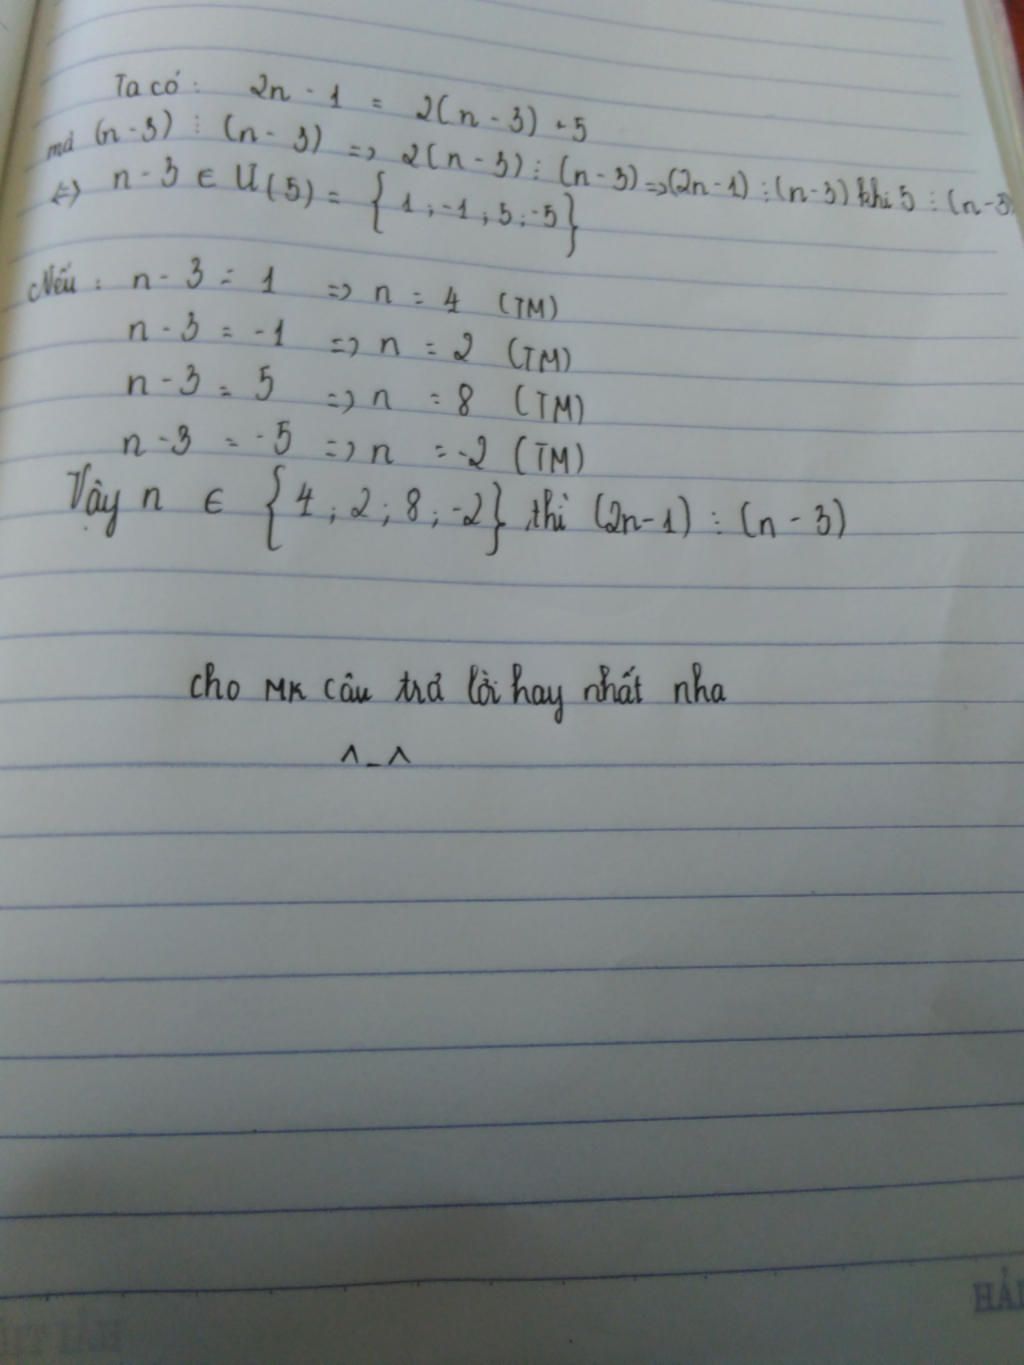 Ta có : 2n - 1 = 2(n - 3) + 5
mà (n - 3) ⋮ (n - 3) => 2(n - 3) ⋮ (n - 3) => (2n - 1) ⋮ (n - 3) khi 5 ⋮ (n - 3)
<=> n - 3 ∈ Ư(5) = { 1 ; -1 ; 5 ; -5 }
Nếu : n - 3 = 1 => n = 4 (TM)
n - 3 = -1 => n = 2 (TM)
n - 3 = 5 => n = 8 (TM)
n - 3 = -5 => n = -2 (TM)
Vậy n ∈ { 4 ; 2 ; 8 ; -2 } thì (2n - 1) ⋮ (n - 3)
cho MK câu trả lời hay nhất nha
^_^
HẢI